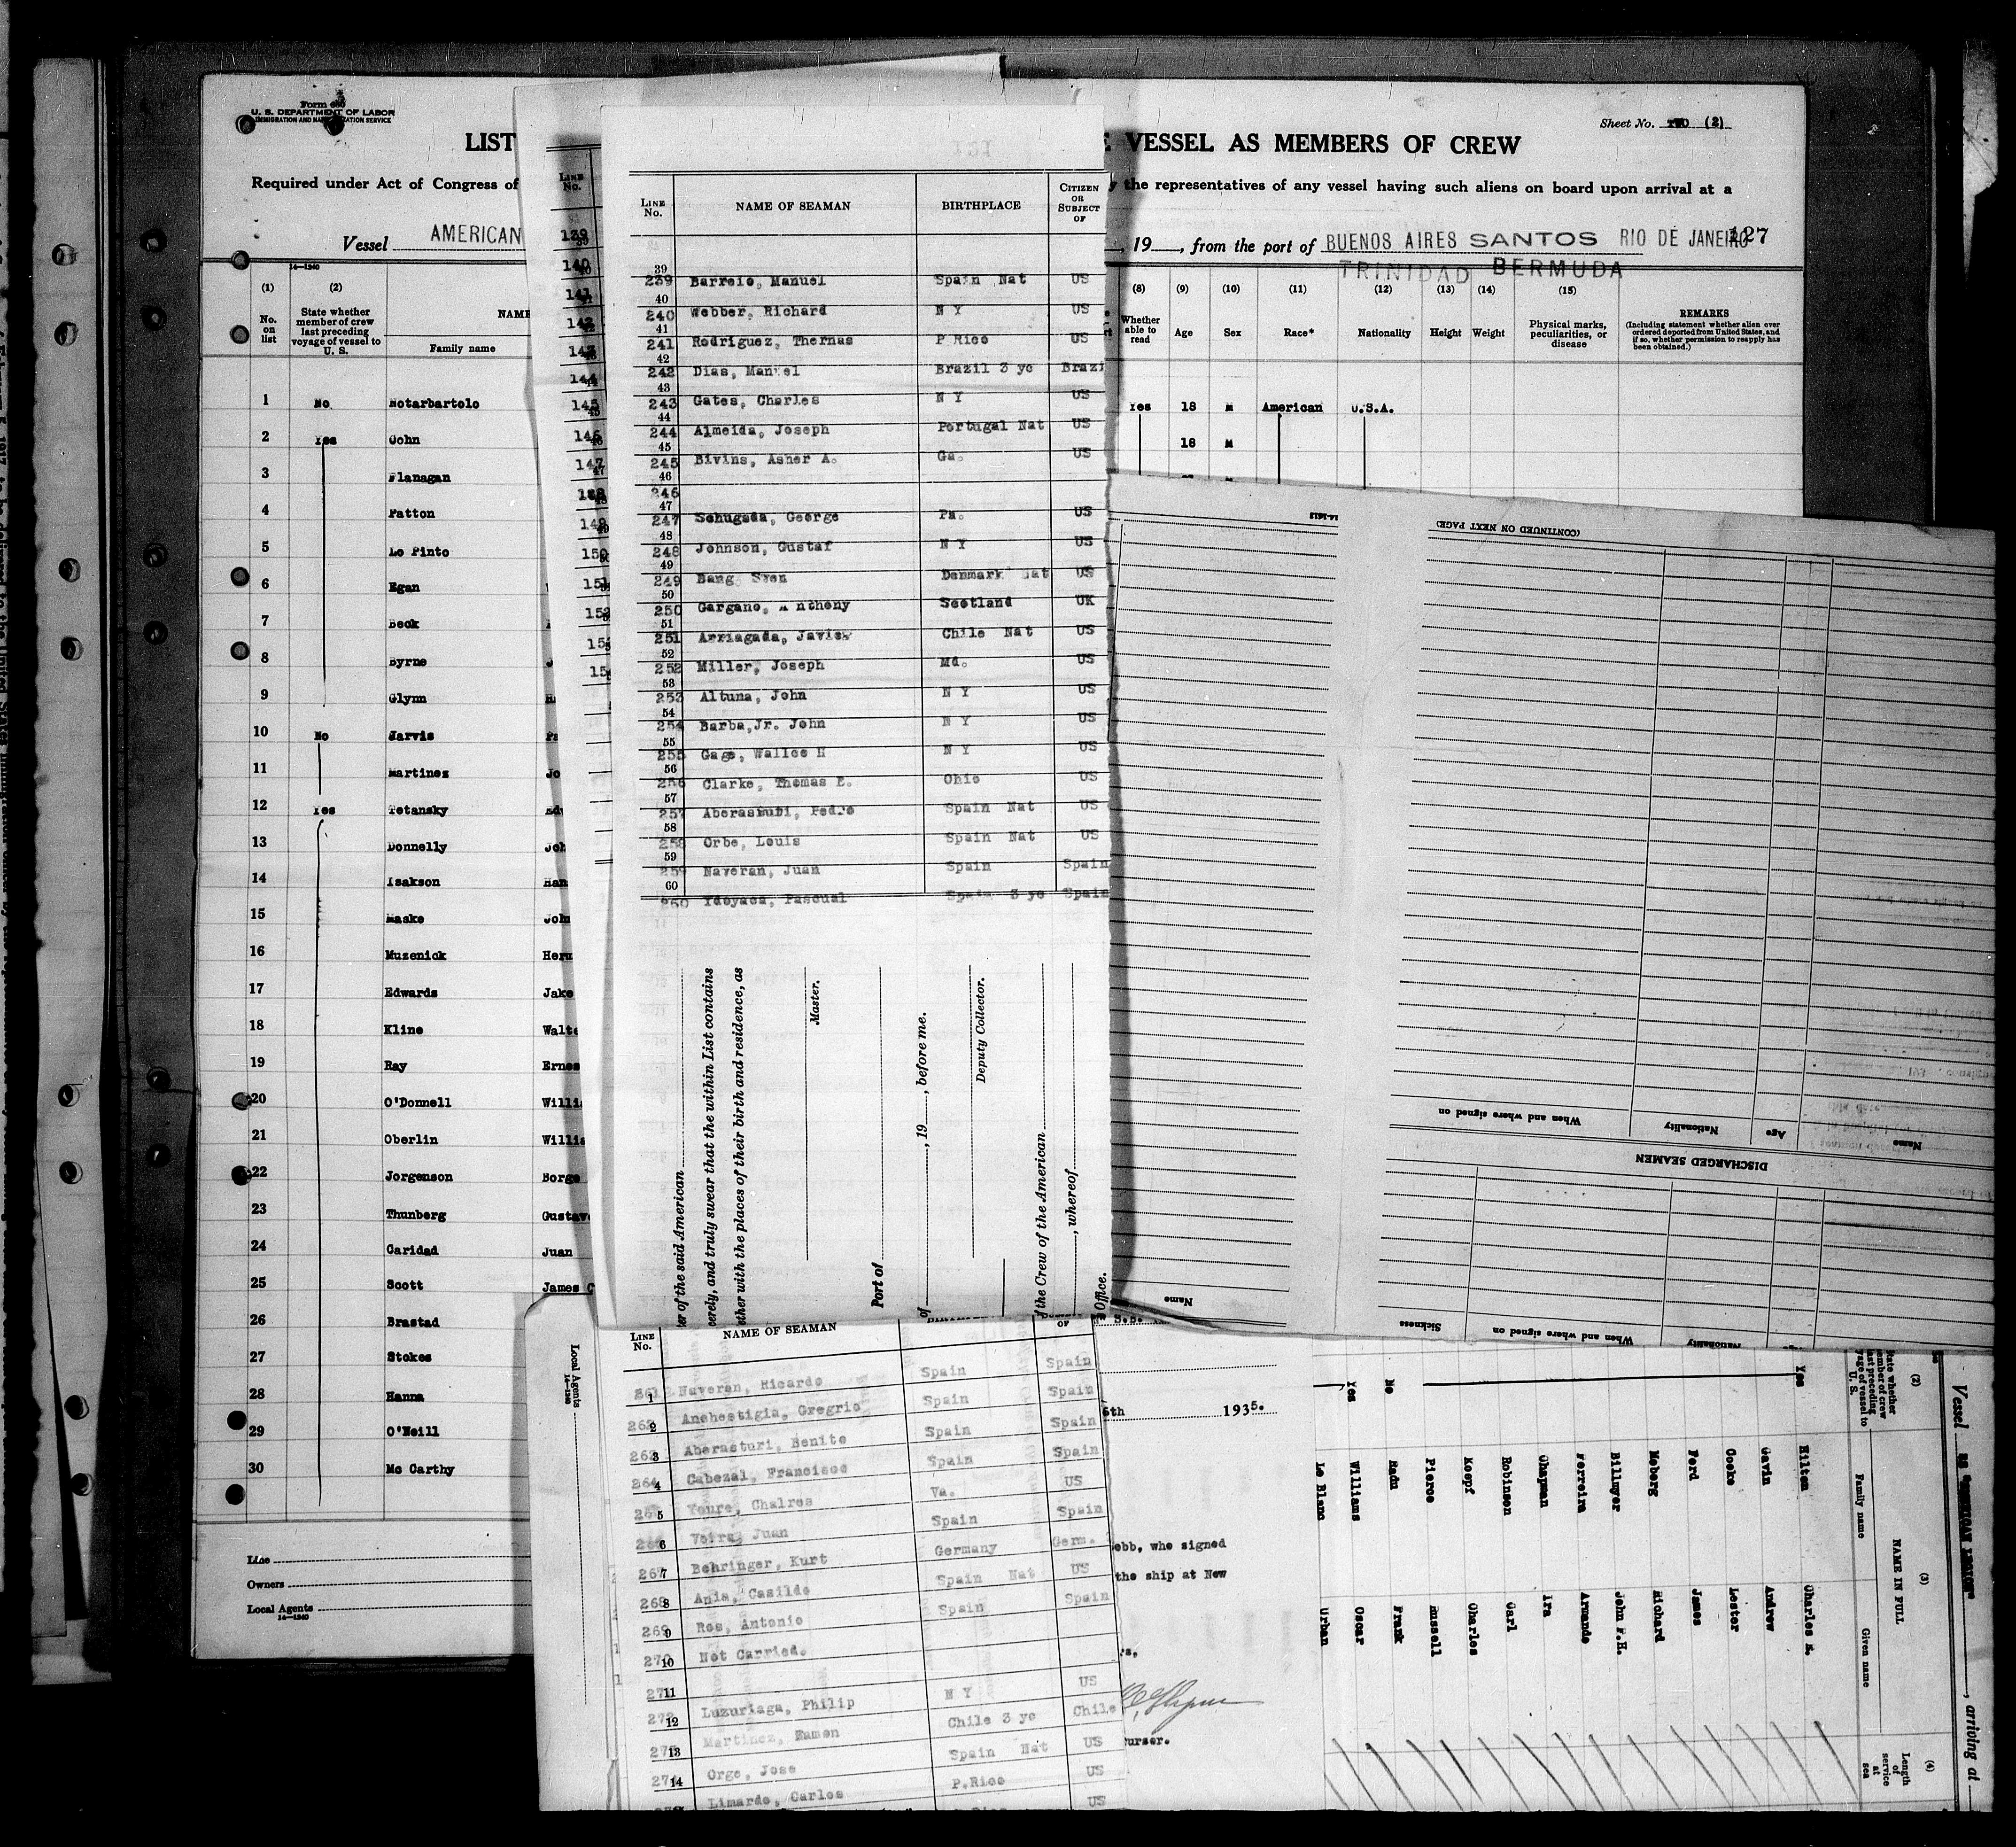 Form 686
U. S. DEPARTMENT OF LABOR
IMMIGRATION AND NATURALIZATION SERVICE
Sheet No. TWO (2)
LIST
VESSEL AS MEMBERS OF CREW
Required under Act of Congress of
the representatives of any vessel having such aliens on board upon arrival at a
Vessel AMERICAN
, 19 , from the port of BUENOS AIRES SANTOS RIO DE JANEIRO
127
TRINIDAD BERMUDA
14-1240
(1) (2)
No. on list
State whether member of crew last preceding voyage of vessel to U. S.
NAME
Family name
(8) (9) (10) (11) (12) (13) (14) (15)
Whether able to read
Age Sex Race* Nationality Height Weight
Physical marks, peculiarities, or disease
REMARKS
(Including statement whether alien ever ordered deported from United States, and if so, whether permission to reapply has been obtained.)
1 No Notarbartolo
Yes 18 M American U.S.A.
2 Yes John
18 M
3 Flanagan
4 Patton
5 Lo Pinto
6 Egan
7 Beck
8 Byrne
9 Glynn
10 No Jarvis
11 Martinez Jo
12 Yes Tetansky
13 Donnelly Joh
14 Isakson Han
15 Maske John
16 Muzenick Herm
17 Edwards Jake
18 Kline Walte
19 Ray Ernes
20 O'Donnell Willi
21 Oberlin Willia
22 Jorgenson Borge
23 Thunberg Gustav
24 Caridad Juan
25 Scott James C
26 Brastad
27 Stokes
28 Hanna
29 O'Neill
30 Mc Carthy
Line
Owners
Local Agents
14-1240
LINE No.
139
140
141
142
143
144
145
146
147
148
149
150
151
152
LINE No. NAME OF SEAMAN BIRTHPLACE CITIZEN OR SUBJECT OF
39
239 Barreio, Manuel Spain Nat US
40
240 Webber, Richard N Y US
41
241 Rodriguez, Thernas P Rico US
42
242 Dias, Manuel Brazil 3 ye Brazi
43
243 Gates, Charles N Y US
44
244 Almeida, Joseph Portugal Nat US
45
245 Bivins, Asher A. Ga. US
46
246
47
247 Sehugada, George Pa. US
48
248 Johnson, Gustaf N Y US
49
249 Bang Sven Denmark Nat US
50
250 Gargano, Anthony Scotland UK
51
251 Arriagada, Javier Chile Nat US
52
252 Miller, Joseph Md. US
53
253 Altuna, John N Y US
54
254 Barba,Jr. John N Y US
55
255 Gage, Wallce H N Y US
56
256 Clarke, Thomas L. Ohio US
57
257 Aberasturi, Pedro Spain Nat US
58
258 Orbe, Louis Spain Nat US
59
259 Naveran, Juan Spain Spain
60
260 Ydoyaga, Pascual Spain 3 ye Spain
of the said American
erely, and truly swear that the within List contains
ther with the places of their birth and residence, as
Master.
Port of
of , 19 , before me.
Deputy Collector.
the Crew of the American
, whereof
Office.
LINE No. NAME OF SEAMAN OF
261 1 Naveran, Ricardo Spain Spain
262 2 Anchestigia, Gregrio Spain Spain
263 3 Aberasturi, Benito Spain Spain
264 4 Cabezal, Francisco Spain Spain
265 5 Youre, Chalres Va. US
266 6 Voira, Juan Spain Spain
267 7 Behringer, Kurt Germany Germ.
268 8 Ania, Casildo Spain Nat US
269 9 Ros, Antonio Spain Spain
270 10 Not Carried.
271 11
272 12 Luzuriaga, Philip N Y US
273 13 Martinez, Ramon Chile 3 ye Chile
274 14 Orge, Jose Spain Nat US
Limardo, Carlos P.Rico US
US
Local Agents
14-1240
(CONTINUED ON NEXT PAGE)
14-1612
When and where signed on
Nationality
Age
Name
DISCHARGED SEAMEN
Name
Sickness
When and where signed on
Nationality
S.S.
5th 1935.
ebb, who signed
the ship at New
rs,
Purser.
Vessel SS "AMERICAN LEGION" , arriving at
(2) (3) (4)
State whether member of crew last preceding voyage of vessel to U. S.
NAME IN FULL
Family name
Given name
Length of service at sea
Yes Hilten Charles E.
Gavin Andrew
Cooke Lester
Ford James
Moberg Richard
Billmyer John F.H.
Ferreira Armando
Chapman Ira
Robinson Carl
Koepf Charles
Pierce Russell
No Radu Frank
Yes Williams Oscar
Le Blanc Urban